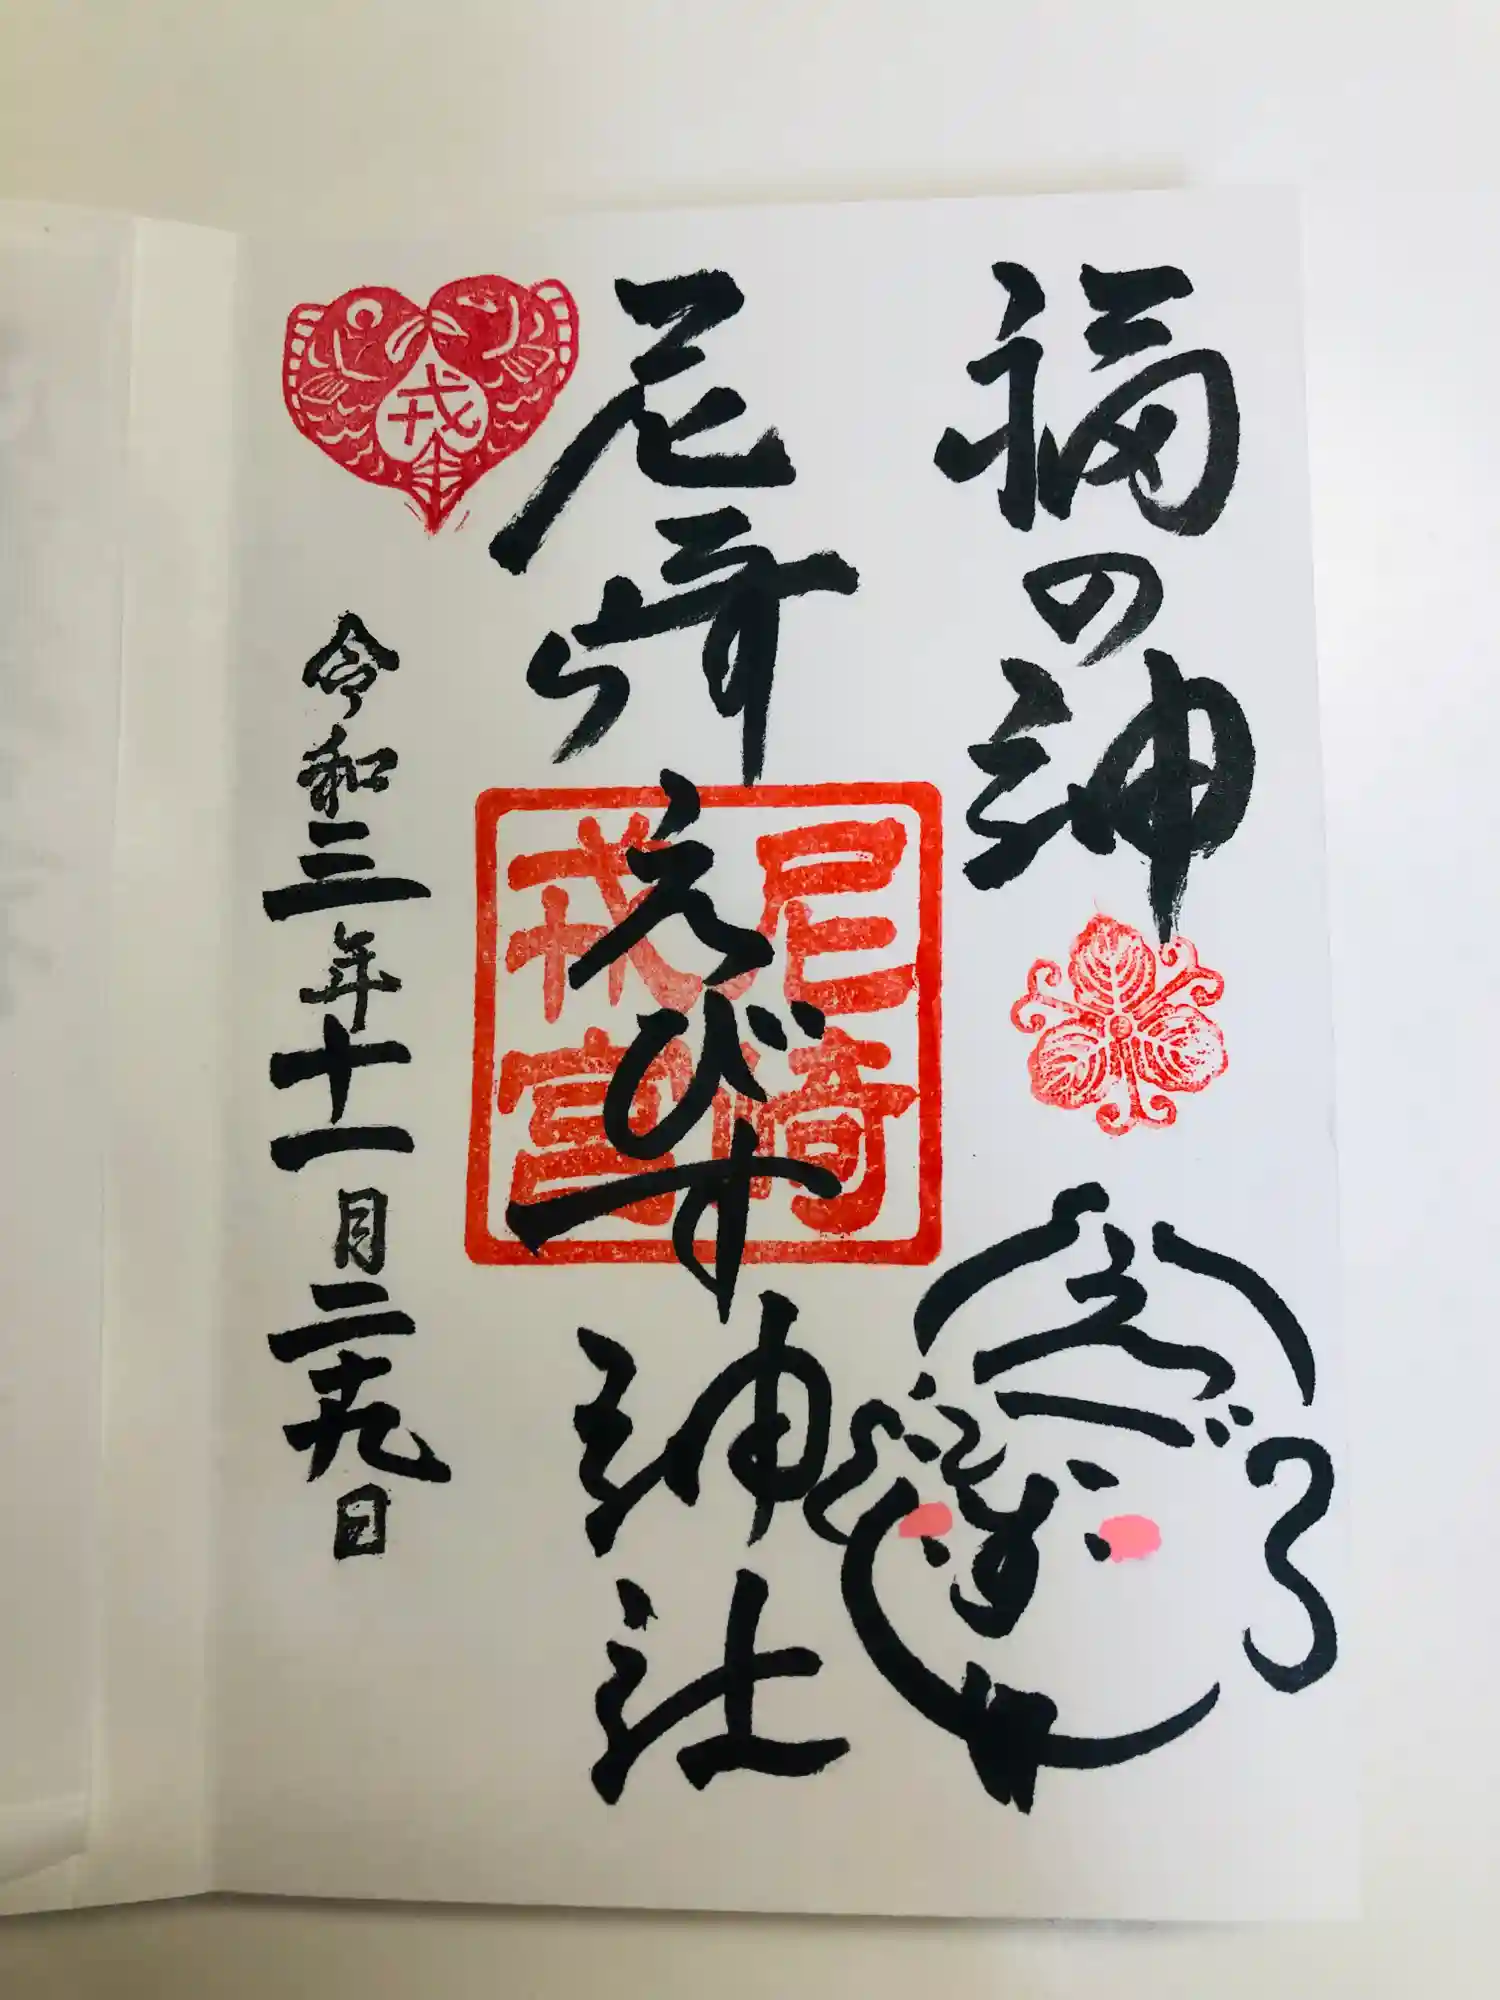 福の神
えびす
尼崎えびす神社
尼崎
戎宮
戎
令和三年十一月二十九日